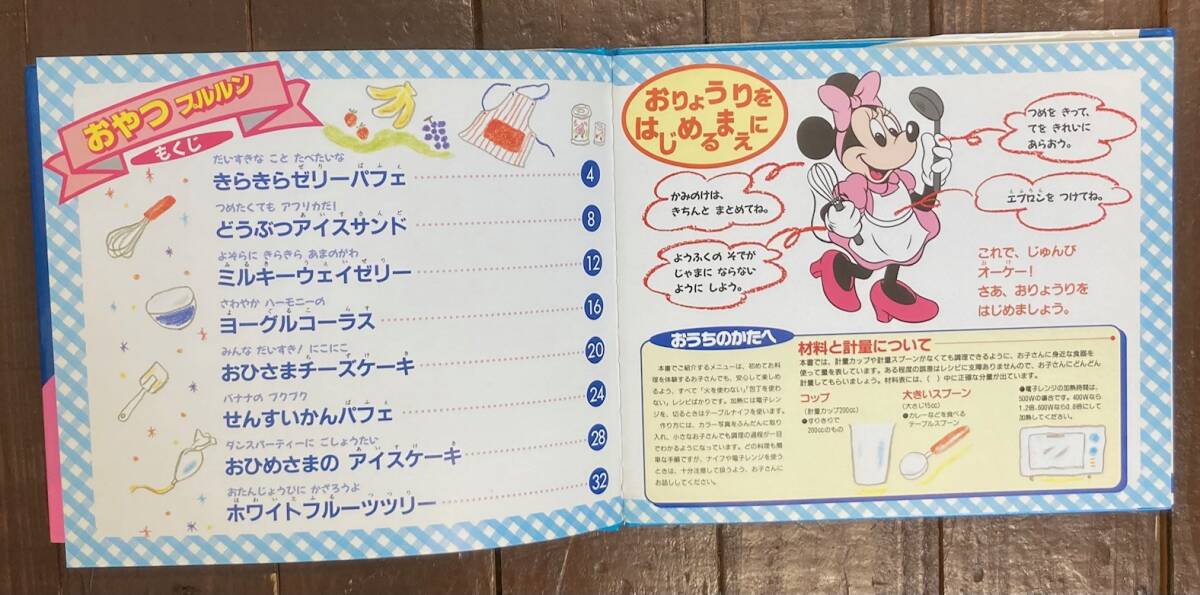 おやつ プルルン
もくじ
だいすきな こと たべたいな
きらきらゼリーパフェ
4
つめたくても アフリカだ!
どうぶつアイスサンド
8
よぞらに きらきら あまのがわ
ミルキーウェイゼリー
12
さわやか ハーモニーの
ヨーグルコーラス
16
みんな だいすき! にこにこ
おひさまチーズケーキ
20
バナナの ブクブク
せんすいかんパフェ
24
ダンスパーティーに ごしょうたい
おひめさまの アイスケーキ
28
おたんじょうびに かざろうよ
ホワイトフルーツツリー
32
おりょうりを
はじめるまえに
つめを きって、
てを きれいに
あらおう。
かみのけは、
きちんと まとめてね。
エプロンを つけてね。
ようふくの そでが
じゃまに ならない
ように しよう。
これで、じゅんび
オーケー!
さあ、おりょうりを
はじめましょう。
おうちのかたへ
本書でご紹介するメニューは、初めてお料
理を体験するお子さんでも、安心して楽しめ
るよう、すべて「火を使わない」「包丁を使わ
ない」レシピばかりです。加熱には電子レン
ジを、切るときはテーブルナイフを使います。
作り方には、カラー写真をふんだんに取り
入れ、小さなお子さんでも調理の過程が一目
でわかるようになっています。どの料理も簡
単な手順ですが、ナイフや電子レンジを使う
ときは、十分注意して扱うよう、お子さんに
お話ししてください。
材料と計量について
本書では、計量カップや計量スプーンがなくても調理できるように、お子さんに身近な食器を
使って量を表しています。ある程度の誤差はレシピに支障ありませんので、お子さんにどんどん
計量してもらいましょう。材料表には、( )中に正確な分量が出ています。
コップ
(計量カップ200cc)
●すりきりで
200ccのもの
大きいスプーン
(大さじ15cc)
●カレーなどを食べる
テーブルスプーン
●電子レンジの加熱時間は、
500Wの場合です。400Wなら
1.2倍、600Wなら0.8倍にして
加熱してください。